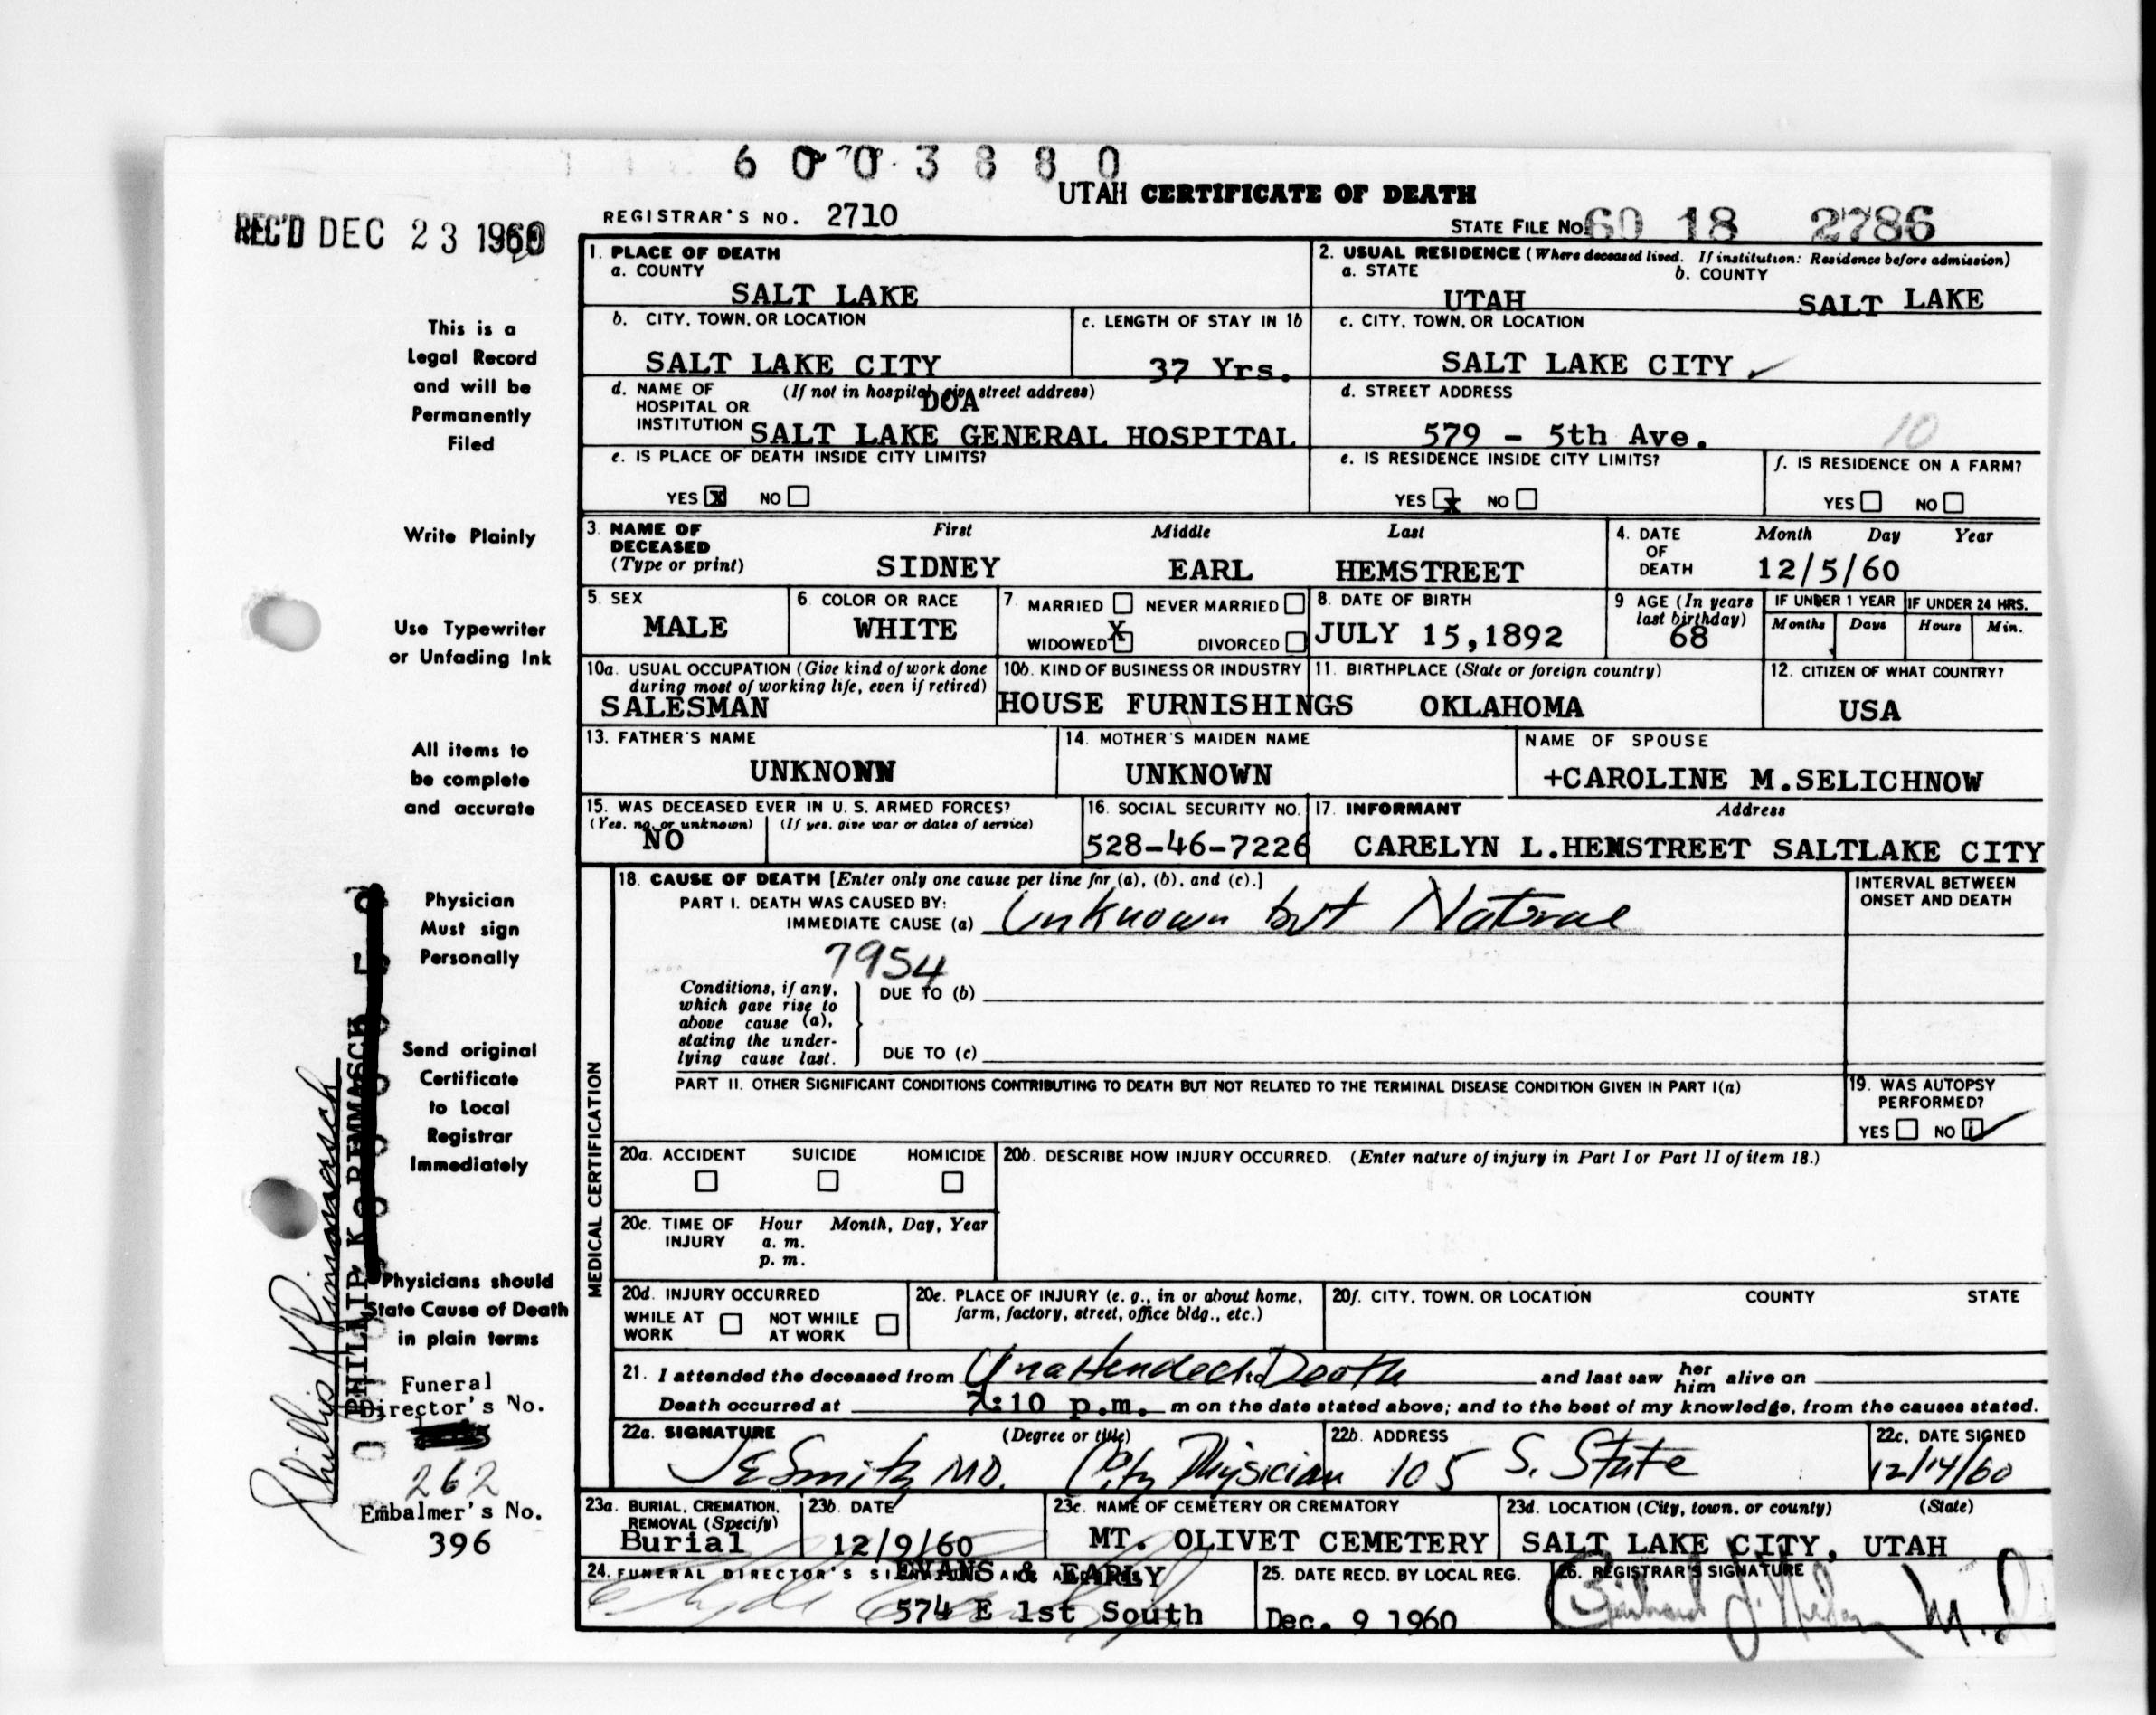 6 0 0 3 8 8 0
UTAH CERTIFICATE OF DEATH
REC'D DEC 23 1960
REGISTRAR'S NO. 2710
STATE FILE NO. 60 18 2786
1. PLACE OF DEATH
a. COUNTY
SALT LAKE
2. USUAL RESIDENCE (Where deceased lived. If institution: Residence before admission)
a. STATE b. COUNTY
UTAH SALT LAKE
b. CITY, TOWN, OR LOCATION
SALT LAKE CITY
c. LENGTH OF STAY IN 1b
37 Yrs.
c. CITY, TOWN, OR LOCATION
SALT LAKE CITY
d. NAME OF HOSPITAL OR INSTITUTION (If not in hospital, give street address)
DOA
SALT LAKE GENERAL HOSPITAL
d. STREET ADDRESS
579 - 5th Ave. 10
e. IS PLACE OF DEATH INSIDE CITY LIMITS?
YES X NO
e. IS RESIDENCE INSIDE CITY LIMITS?
YES X NO
f. IS RESIDENCE ON A FARM?
YES NO
3. NAME OF DECEASED (Type or print)
First Middle Last
SIDNEY EARL HEMSTREET
4. DATE OF DEATH Month Day Year
12/5/60
5. SEX
MALE
6. COLOR OR RACE
WHITE
7. MARRIED NEVER MARRIED
WIDOWED X DIVORCED
8. DATE OF BIRTH
JULY 15,1892
9 AGE (In years last birthday)
68
IF UNDER 1 YEAR IF UNDER 24 HRS.
Months Days Hours Min.
10a. USUAL OCCUPATION (Give kind of work done during most of working life, even if retired)
SALESMAN
10b. KIND OF BUSINESS OR INDUSTRY
HOUSE FURNISHINGS
11. BIRTHPLACE (State or foreign country)
OKLAHOMA
12. CITIZEN OF WHAT COUNTRY?
USA
13. FATHER'S NAME
UNKNONN
14. MOTHER'S MAIDEN NAME
UNKNOWN
NAME OF SPOUSE
+CAROLINE M.SELICHNOW
15. WAS DECEASED EVER IN U. S. ARMED FORCES?
(Yes, no, or unknown) (If yes, give war or dates of service)
NO
16. SOCIAL SECURITY NO.
528-46-7226
17. INFORMANT Address
CARELYN L.HEMSTREET SALTLAKE CITY
MEDICAL CERTIFICATION
18. CAUSE OF DEATH [Enter only one cause per line for (a), (b), and (c).]
PART I. DEATH WAS CAUSED BY:
IMMEDIATE CAUSE (a) Unknown but Natural
INTERVAL BETWEEN ONSET AND DEATH
7954
Conditions, if any, which gave rise to above cause (a), stating the underlying cause last.
DUE TO (b)
DUE TO (c)
PART II. OTHER SIGNIFICANT CONDITIONS CONTRIBUTING TO DEATH BUT NOT RELATED TO THE TERMINAL DISEASE CONDITION GIVEN IN PART I(a)
19. WAS AUTOPSY PERFORMED?
YES NO
20a. ACCIDENT SUICIDE HOMICIDE
20b. DESCRIBE HOW INJURY OCCURRED. (Enter nature of injury in Part I or Part II of item 18.)
20c. TIME OF INJURY Hour Month, Day, Year
a. m.
p. m.
20d. INJURY OCCURRED
WHILE AT WORK NOT WHILE AT WORK
20e. PLACE OF INJURY (e. g., in or about home, farm, factory, street, office bldg., etc.)
20f. CITY, TOWN, OR LOCATION COUNTY STATE
21. I attended the deceased from Unattended to Death and last saw her him alive on
Death occurred at 7:10 p.m. m on the date stated above; and to the best of my knowledge, from the causes stated.
22a. SIGNATURE (Degree or title)
JE Smith MD. City Physician
22b. ADDRESS
105 S. State
22c. DATE SIGNED
12/14/60
23a. BURIAL, CREMATION, REMOVAL (Specify)
Burial
23b. DATE
12/9/60
23c. NAME OF CEMETERY OR CREMATORY
MT. OLIVET CEMETERY
23d. LOCATION (City, town, or county) (State)
SALT LAKE CITY, UTAH
24. FUNERAL DIRECTOR'S SIGNATURE AND ADDRESS
EVANS & EARLY
574 E 1st South
25. DATE RECD. BY LOCAL REG.
Dec. 9 1960
26. REGISTRAR'S SIGNATURE
This is a
Legal Record
and will be
Permanently
Filed
Write Plainly
Use Typewriter
or Unfading Ink
All items to
be complete
and accurate
Physician
Must sign
Personally
Send original
Certificate
to Local
Registrar
Immediately
Physicians should
State Cause of Death
in plain terms
Funeral
Director's No.
262
Embalmer's No.
396